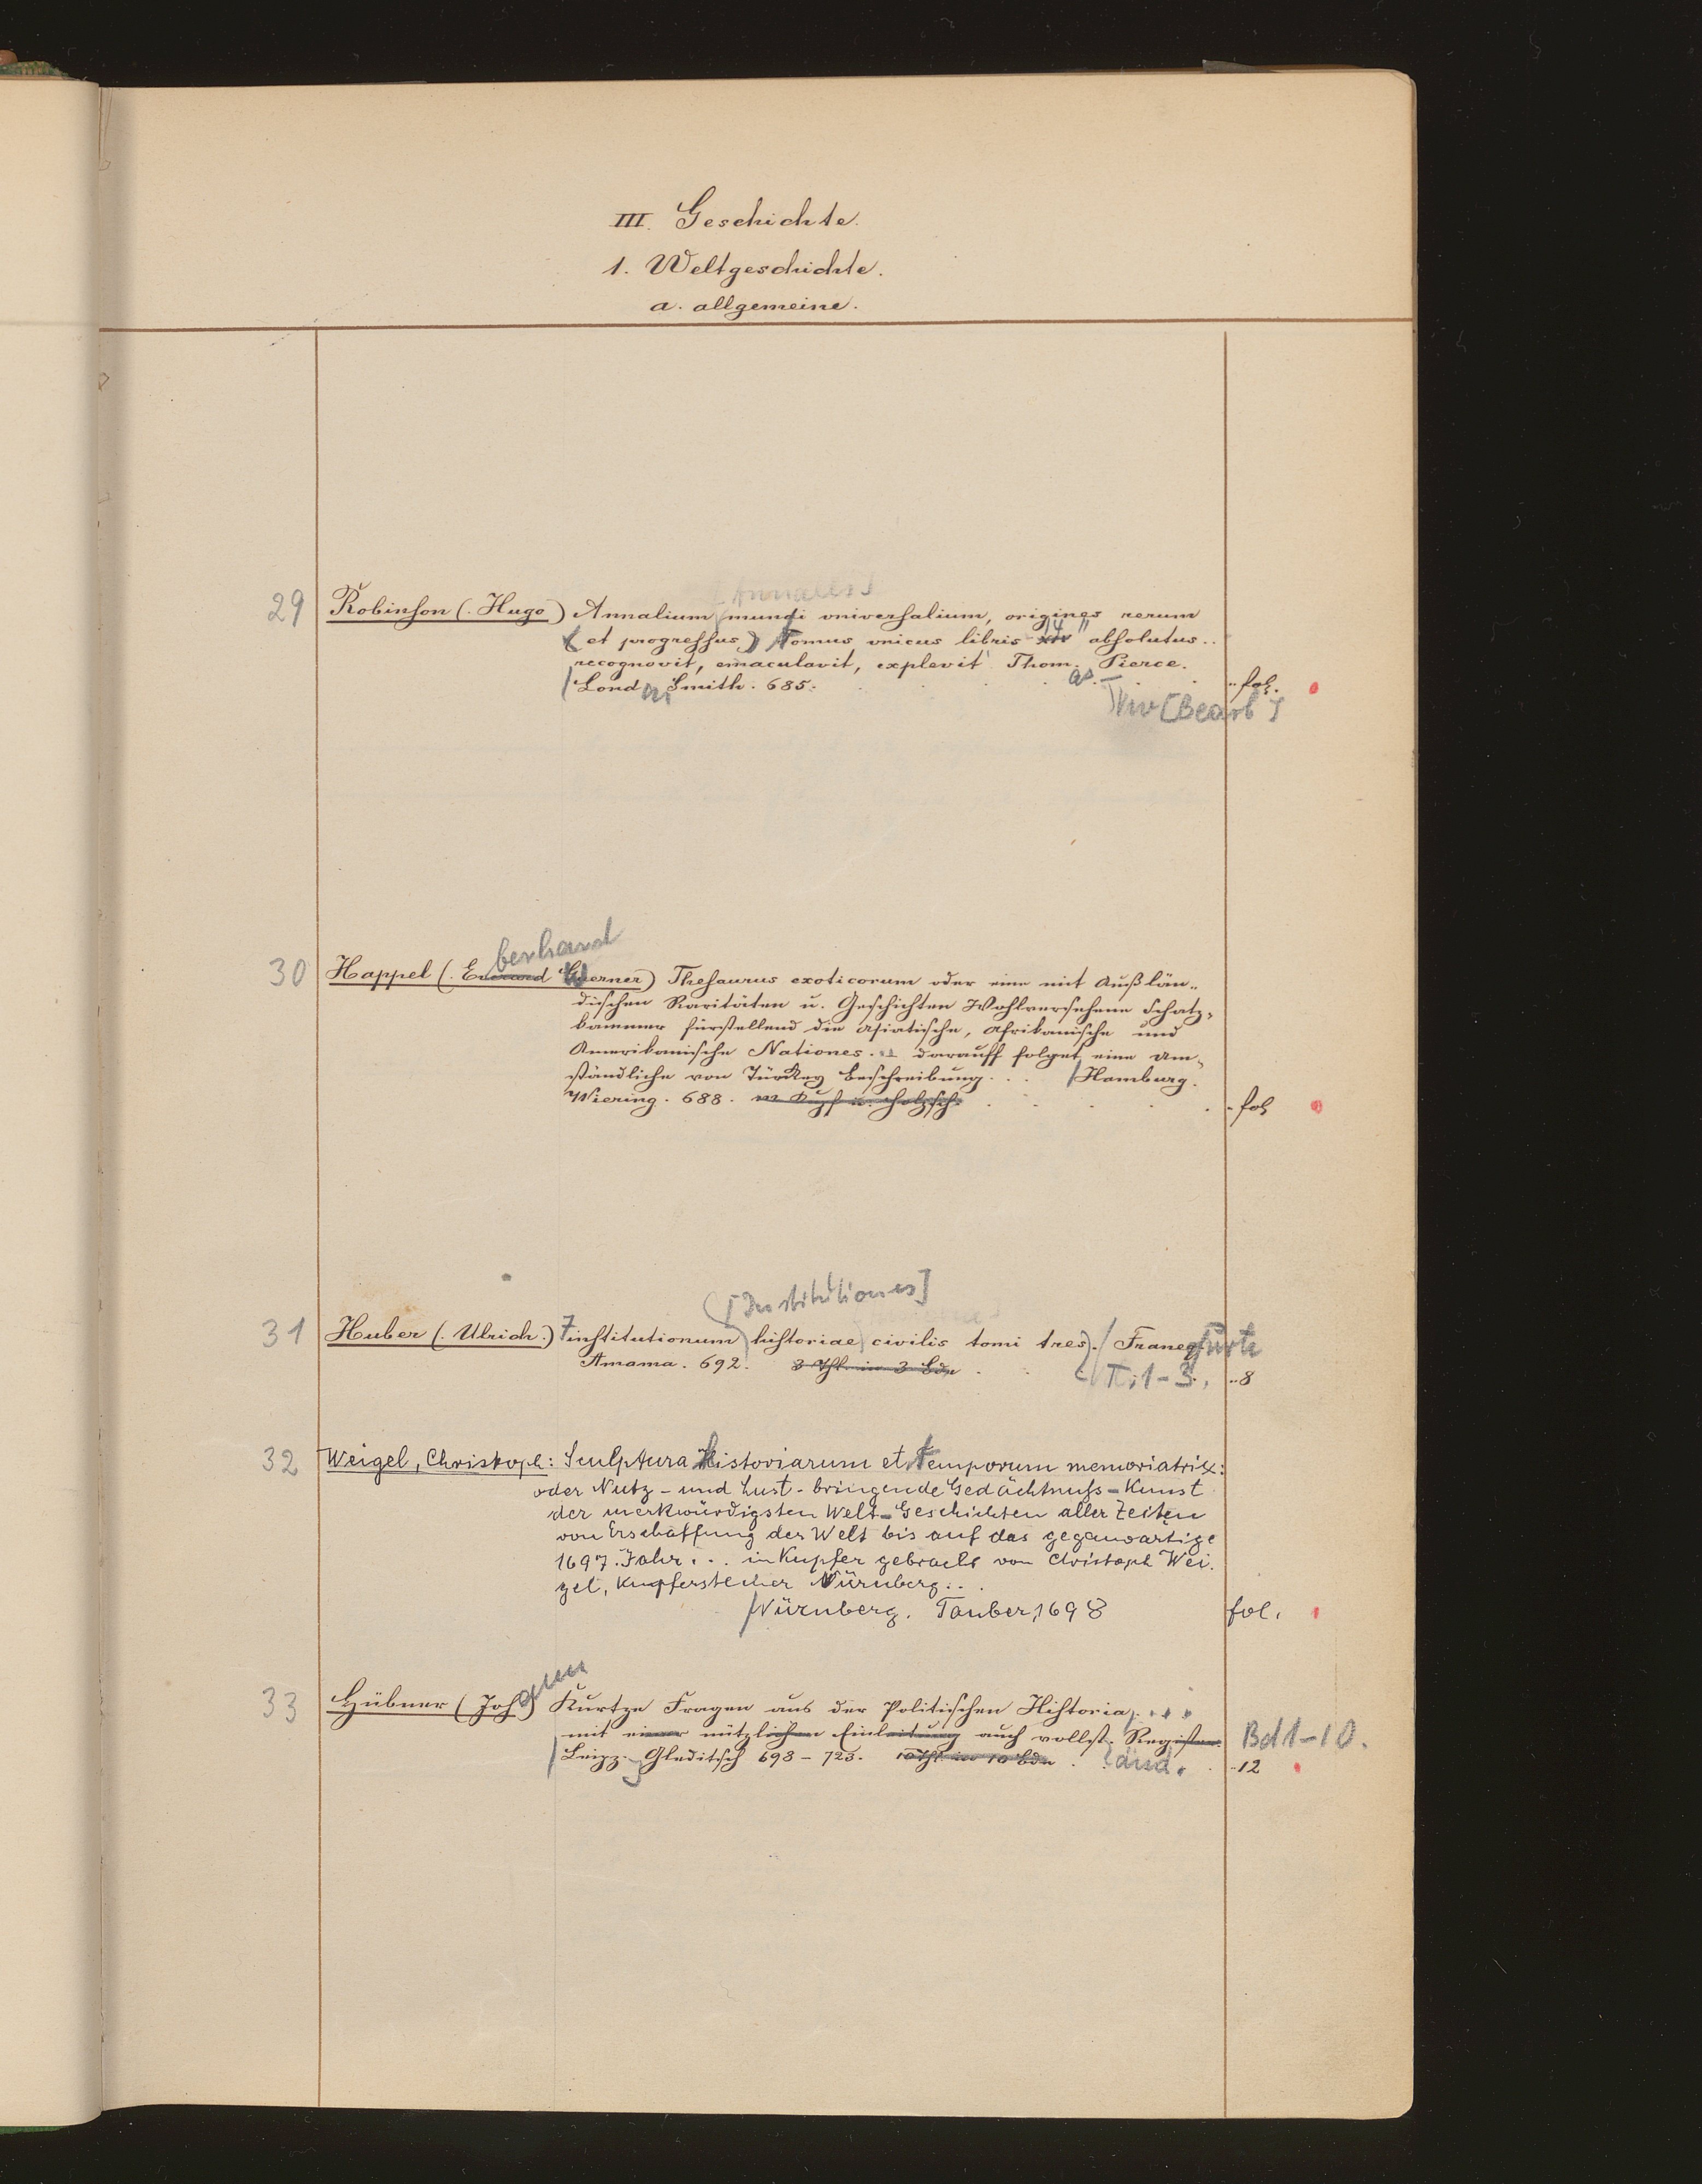 III. Geschichte.
1. Weltgeschichte.
a. allgemeine.
[Annales]
29 Robinson (. Hugo) Annalium mundi universalium, origines rerum
(et progressus) Tomus unicus libris 14 absolutus..
recognovit, emaculavit, explevit Thomas Pierce.
/ Londini Smith. 685. fol.
[Bearb]
berhard
30 Happel (. Everard Guerner) Thesaurus exoticorum oder eine mit Außlän-
dischen Raritäten u. Geschichten Wohlversehene Schatz-
kammer fürstellend die Asiatische, Afrikanische und
Amerikanische Nationes. darauff folget eine Um-
ständliche von Türckey Beschreibung... / Hamburg.
Wiering. 688. m Kupf u. Holzsch. fol
[Institutiones]
31 Huber (. Ulrich.) 7 institutionum historiae civilis tomi tres). / Franeq
Amama. 692. 3 Thl. in 3 Bdn T. 1-3. 8
32 Weigel, Christoph: Sculptura historiarum et temporum memoriatrix:
oder Nutz- und Lust-bringende Gedächtnuß-Kunst
der merkwürdigsten Welt-Geschichten aller Zeiten
von Erschaffung der Welt bis auf das gegenwärtige
1697. Jahr... in Kupfer gebracht von Christoph Wei.
gel, Kupferstecher Nürnberg...
/ Nürnberg. Tauber, 1698 fol.
33 Hübner (Joh) Kurtze Fragen aus der Politischen Historia, ...
mit einer nützlichen Einleitung auch vollst. Register. Bd 1-10.
/ Leipz. Gleditsch 698-725. 10 Thl. in 10 Bdn. 12